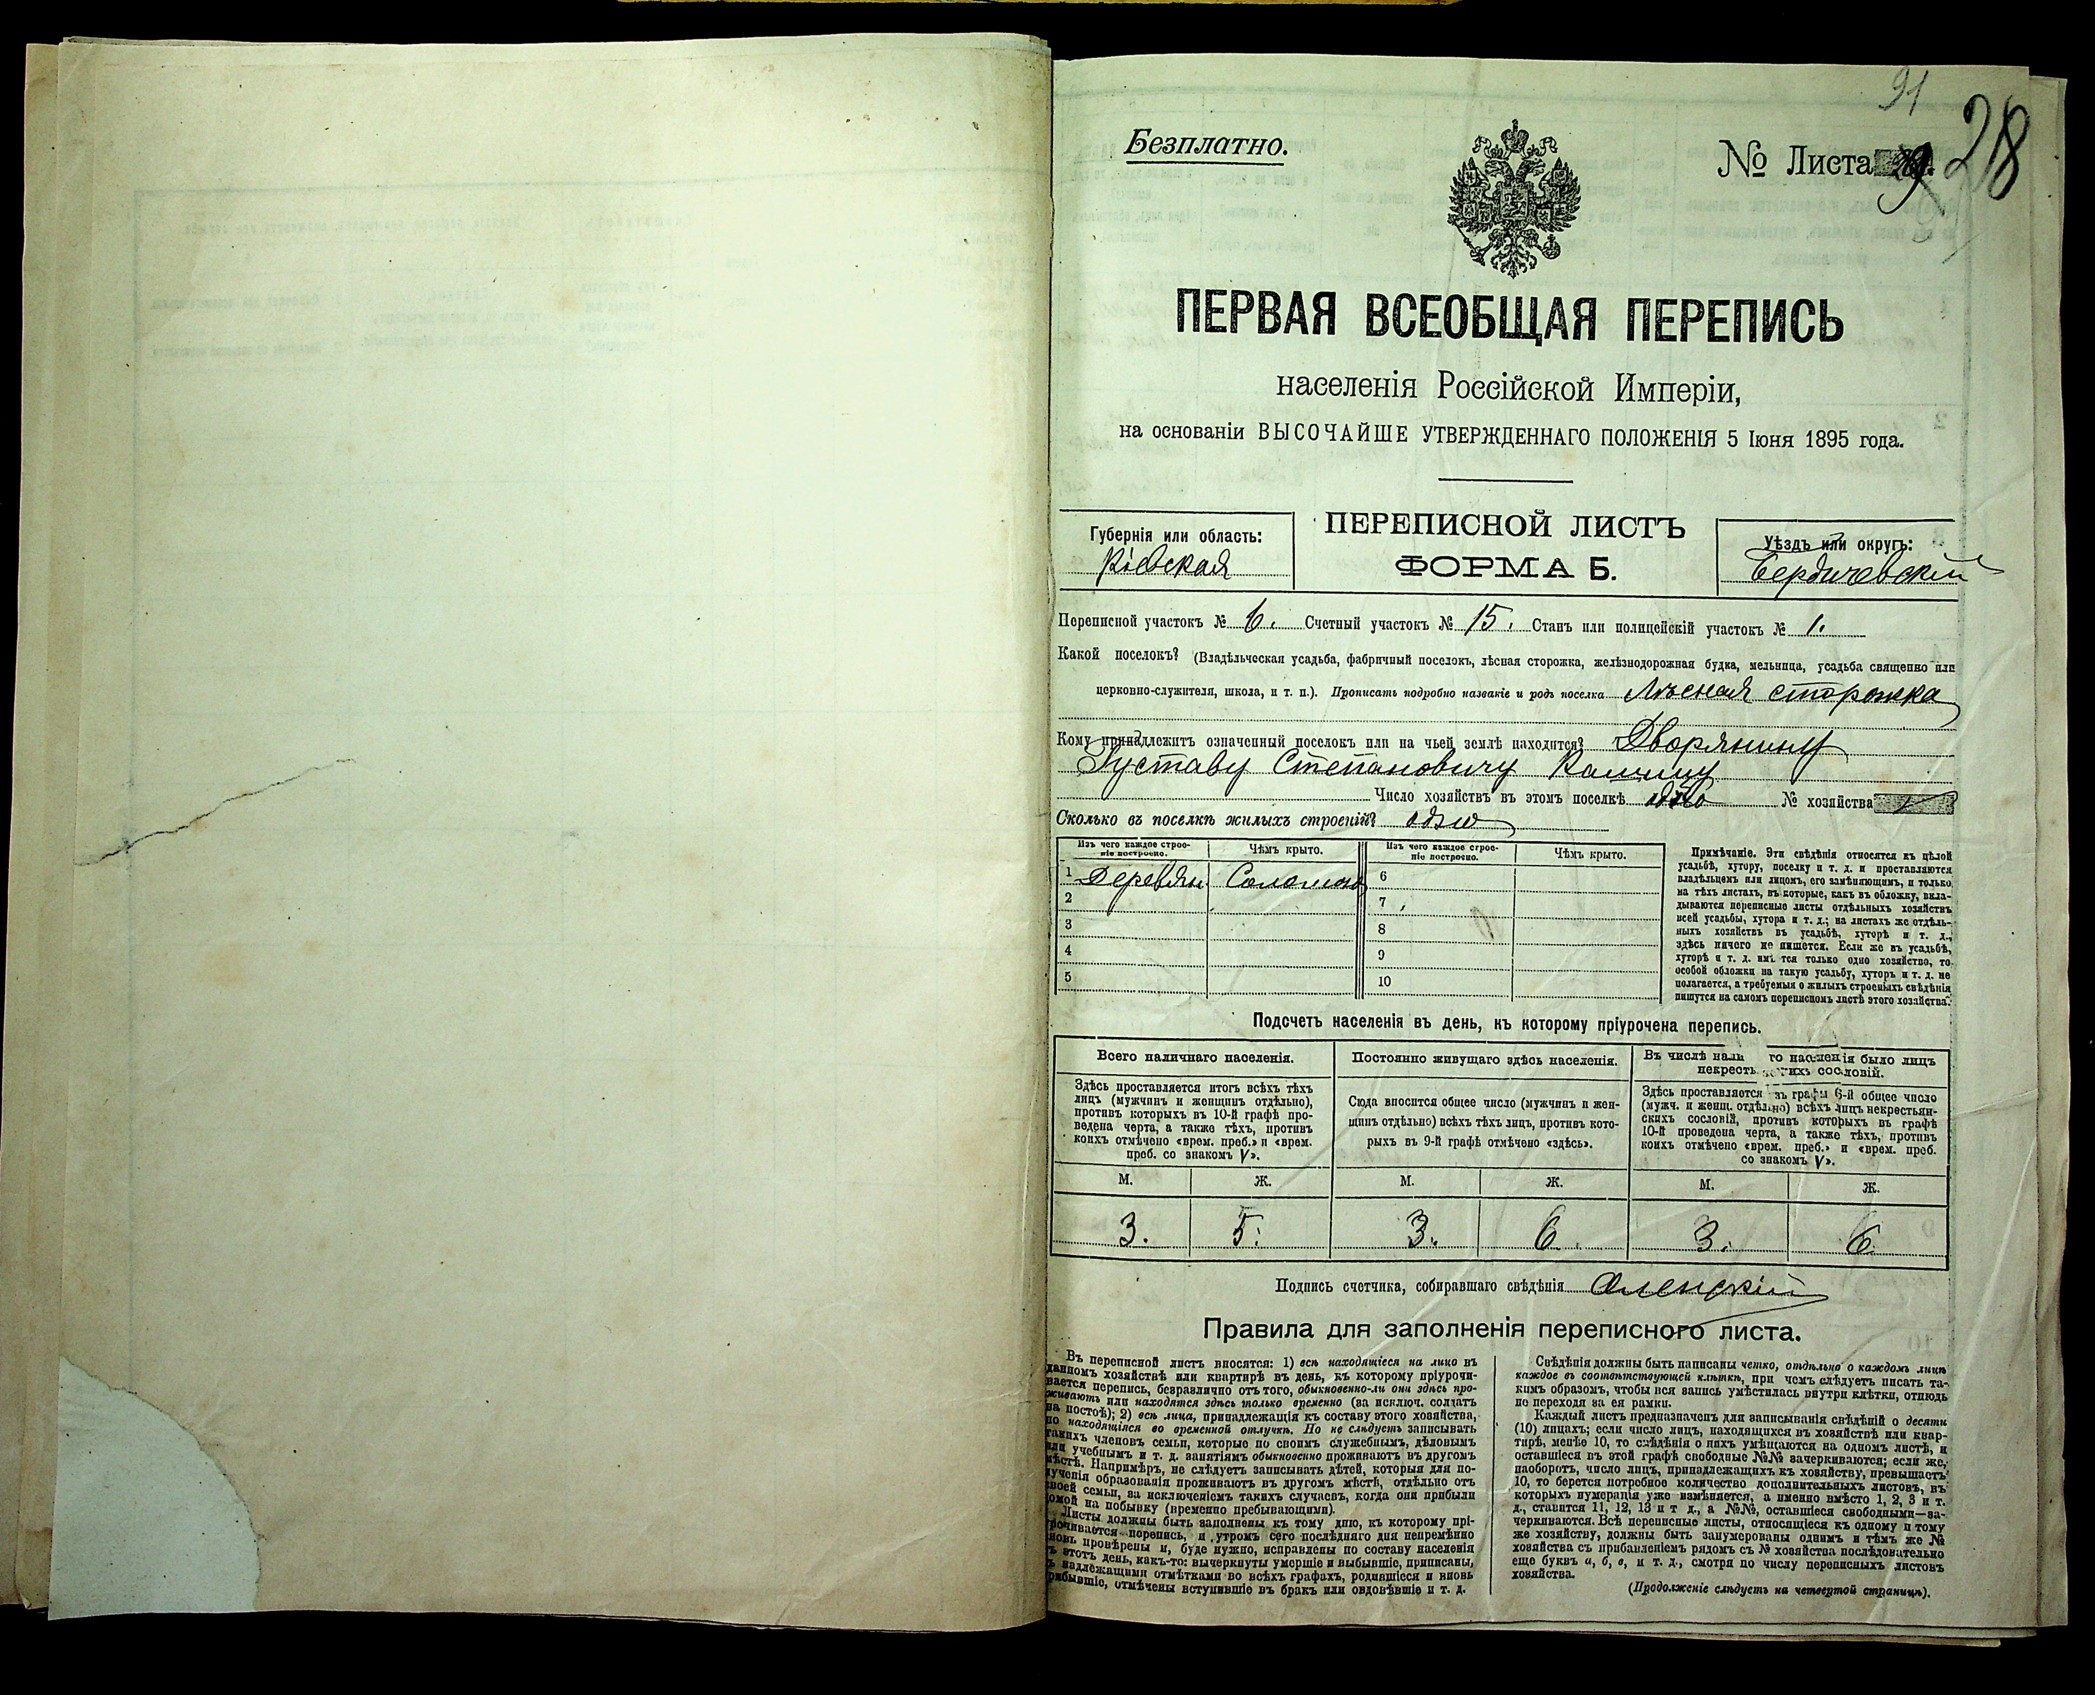 91
Безплатно.
№ Листа 28
ПЕРВАЯ ВСЕОБЩАЯ ПЕРЕПИСЬ
населенія Россійской Имперіи,
на основаніи ВЫСОЧАЙШЕ УТВЕРЖДЕННАГО ПОЛОЖЕНІЯ 5 Іюня 1895 года.
ПЕРЕПИСНОЙ ЛИСТЪ
ФОРМА Б.
Губернія или область:
Кіевская
Уѣздъ или округъ:
Бердичевскій
Переписной участокъ № 6. Счетный участокъ № 15. Станъ или полицейскій участокъ № 1.
Какой поселокъ? (Владѣльческая усадьба, фабричный поселокъ, лѣсная сторожка, желѣзнодорожная будка, мельница, усадьба священно или
церковно-служителя, школа, и т. п.). Прописать подробно названіе и родъ поселка Лѣсная сторожка
Кому принадлежитъ означенный поселокъ или на чьей землѣ находится? Дворянину
Густаву Степановичу
Число хозяйствъ въ этомъ поселкѣ одно № хозяйства
Сколько въ поселкѣ жилыхъ строеній? одно
Изъ чего каждое строе-
ніе построено.
Чѣмъ крыто.
Изъ чего каждое строе-
ніе построено.
Чѣмъ крыто.
1 Деревян. Соломою 6
2 7
3 8
4 9
5 10
Примѣчаніе. Эти свѣдѣнія относятся къ цѣлой
усадьбѣ, хутору, поселку и т. д. и проставляются
владѣльцемъ или лицомъ, его замѣняющимъ, и только
на тѣхъ листахъ, въ которые, какъ въ обложку, вкла-
дываются переписные листы отдѣльныхъ хозяйствъ
всей усадьбы, хутора и т. д.; на листахъ же отдѣль-
ныхъ хозяйствъ въ усадьбѣ, хуторѣ и т. д.,
здѣсь ничего не пишется. Если же въ усадьбѣ,
хуторѣ и т. д. имѣется только одно хозяйство, то
особой обложки на такую усадьбу, хуторъ и т. д. не
полагается, а требуемыя о жилыхъ строеніяхъ свѣдѣнія
пишутся на самомъ переписномъ листѣ этого хозяйства.
Подсчетъ населенія въ день, къ которому пріурочена перепись.
Всего наличнаго населенія.
Здѣсь проставляется итогъ всѣхъ тѣхъ
лицъ (мужчинъ и женщинъ отдѣльно),
противъ которыхъ въ 10-й графѣ про-
ведена черта, а также тѣхъ, противъ
коихъ отмѣчено «врем. преб.» и «врем.
преб. со знакомъ V».
Постоянно живущаго здѣсь населенія.
Сюда вносится общее число (мужчинъ и жен-
щинъ отдѣльно) всѣхъ тѣхъ лицъ, противъ кото-
рыхъ въ 9-й графѣ отмѣчено «здѣсь».
Въ числѣ нали го населенія было лицъ
некрестьянскихъ сословій.
Здѣсь проставляется въ графы 6-й общее число
(мужч. и женщ. отдѣльно) всѣхъ лицъ некрестьян-
скихъ сословій, противъ которыхъ въ графѣ
10-й проведена черта, а также тѣхъ, противъ
коихъ отмѣчено «врем. преб.» и «врем. преб.
со знакомъ V».
М. Ж. М. Ж. М. Ж.
3. 5. 3. 6. 3. 6
Подпись счетчика, собиравшаго свѣдѣнія Оленскій
Правила для заполненія переписного листа.
Въ переписной листъ вносятся: 1) всѣ находящіеся на лицо въ
данномъ хозяйствѣ или квартирѣ въ день, къ которому пріурочи-
вается перепись, безразлично отъ того, обыкновенно-ли они здѣсь про-
живаютъ или находятся здѣсь только временно (за исключ. солдатъ
на постоѣ); 2) всѣ лица, принадлежащія къ составу этого хозяйства,
но находящіяся во временной отлучкѣ. Но не слѣдуетъ записывать
такихъ членовъ семьи, которые по своимъ служебнымъ, дѣловымъ
или учебнымъ и т. д. занятіямъ обыкновенно проживаютъ въ другомъ
мѣстѣ. Напримѣръ, не слѣдуетъ записывать дѣтей, которыя для по-
лученія образованія проживаютъ въ другомъ мѣстѣ, отдѣльно отъ
своей семьи, за исключеніемъ такихъ случаевъ, когда они прибыли
домой на побывку (временно пребывающими).
Листы должны быть заполнены къ тому дню, къ которому прі-
урочивается перепись, и утромъ сего послѣдняго дня непремѣнно
вновь провѣрены и, буде нужно, исправлены по составу населенія
въ этотъ день, какъ-то: вычеркнуты умершіе и выбывшіе, приписаны,
съ надлежащими отмѣтками во всѣхъ графахъ, родившіеся и вновь
прибывшіе, отмѣчены вступившіе въ бракъ или овдовѣвшіе и т. д.
Свѣдѣнія должны быть написаны четко, отдѣльно о каждомъ лицѣ
каждое въ соотвѣтствующей клѣткѣ, при чемъ слѣдуетъ писать та-
кимъ образомъ, чтобы вся запись умѣстилась внутри клѣтки, отнюдь
не переходя за ея рамки.
Каждый листъ предназначенъ для записыванія свѣдѣній о десяти
(10) лицахъ; если число лицъ, находящихся въ хозяйствѣ или квар-
тирѣ, менѣе 10, то свѣдѣнія о нихъ умѣщаются на одномъ листѣ, и
оставшіеся въ этой графѣ свободные №№ зачеркиваются; если же,
наоборотъ, число лицъ, принадлежащихъ къ хозяйству, превышаетъ
10, то берется потребное количество дополнительныхъ листовъ, въ
которыхъ нумерація уже измѣняется, а именно вмѣсто 1, 2, 3 и т.
д., ставится 11, 12, 13 и т д., а №№, оставшіеся свободными—за-
черкиваются. Всѣ переписные листы, относящіеся къ одному и тому
же хозяйству, должны быть занумерованы однимъ и тѣмъ же №
хозяйства съ прибавленіемъ рядомъ съ № хозяйства послѣдовательно
еще буквъ а, б, в, и т. д., смотря по числу переписныхъ листовъ
хозяйства.
(Продолженіе слѣдуетъ на четвертой страницѣ).